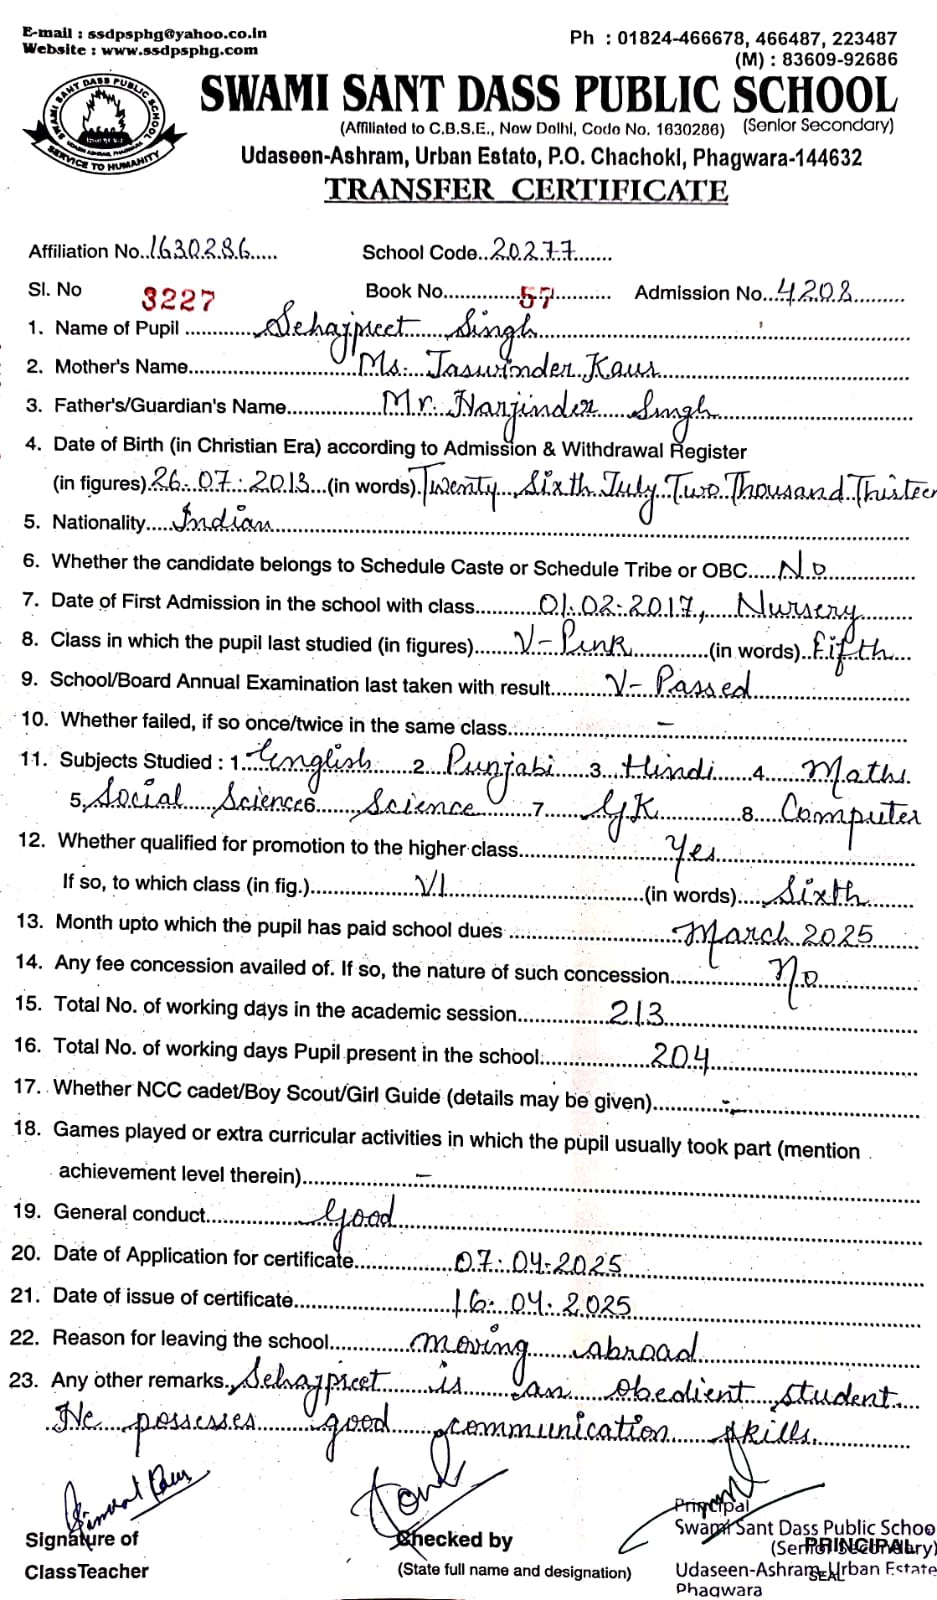 E-mail : ssdpsphg@yahoo.co.in
Website : www.ssdpsphg.com
Ph : 01824-466678, 466487, 223487
(M) : 83609-92686
SWAMI SANT DASS PUBLIC SCHOOL
SWAMI SANT DASS PUBLIC SCHOOL
SERVICE TO HUMANITY
(Affiliated to C.B.S.E., New Delhi, Code No. 1630286) (Senior Secondary)
Udaseen-Ashram, Urban Estate, P.O. Chachoki, Phagwara-144632
TRANSFER CERTIFICATE
Affiliation No. 1630286 School Code 20277
Sl. No 3227 Book No. 57 Admission No. 4208
1. Name of Pupil Sehajpreet Singh
2. Mother's Name Ms. Jaswinder Kaur
3. Father's/Guardian's Name Mr. Harjinder Singh
4. Date of Birth (in Christian Era) according to Admission & Withdrawal Register
(in figures) 26.07.2013 (in words) Twenty Sixth July Two Thousand Thirteen
5. Nationality Indian
6. Whether the candidate belongs to Schedule Caste or Schedule Tribe or OBC No
7. Date of First Admission in the school with class 01.02.2017, Nursery
8. Class in which the pupil last studied (in figures) V-Pink (in words) Fifth
9. School/Board Annual Examination last taken with result V-Passed
10. Whether failed, if so once/twice in the same class –
11. Subjects Studied : 1. English 2 Punjabi 3. Hindi 4. Maths
5. Social Science 6. Science 7 GK 8. Computer
12. Whether qualified for promotion to the higher class Yes
If so, to which class (in fig.) VI (in words) Sixth
13. Month upto which the pupil has paid school dues March 2025
14. Any fee concession availed of. If so, the nature of such concession No
15. Total No. of working days in the academic session 213
16. Total No. of working days Pupil present in the school 204
17. Whether NCC cadet/Boy Scout/Girl Guide (details may be given) –
18. Games played or extra curricular activities in which the pupil usually took part (mention
achievement level therein) –
19. General conduct Good
20. Date of Application for certificate 07.04.2025
21. Date of issue of certificate 16.04.2025
22. Reason for leaving the school moving abroad
23. Any other remarks Sehajpreet is an obedient student.
He possesses good communication skills.
Simral Kaur
Signature of
ClassTeacher
Checked by
(State full name and designation)
Principal
Swami Sant Dass Public Schoo
(Senior Secondary)
PRINCIPAL
Udaseen-Ashram, Urban Estate
SEAL
Phagwara